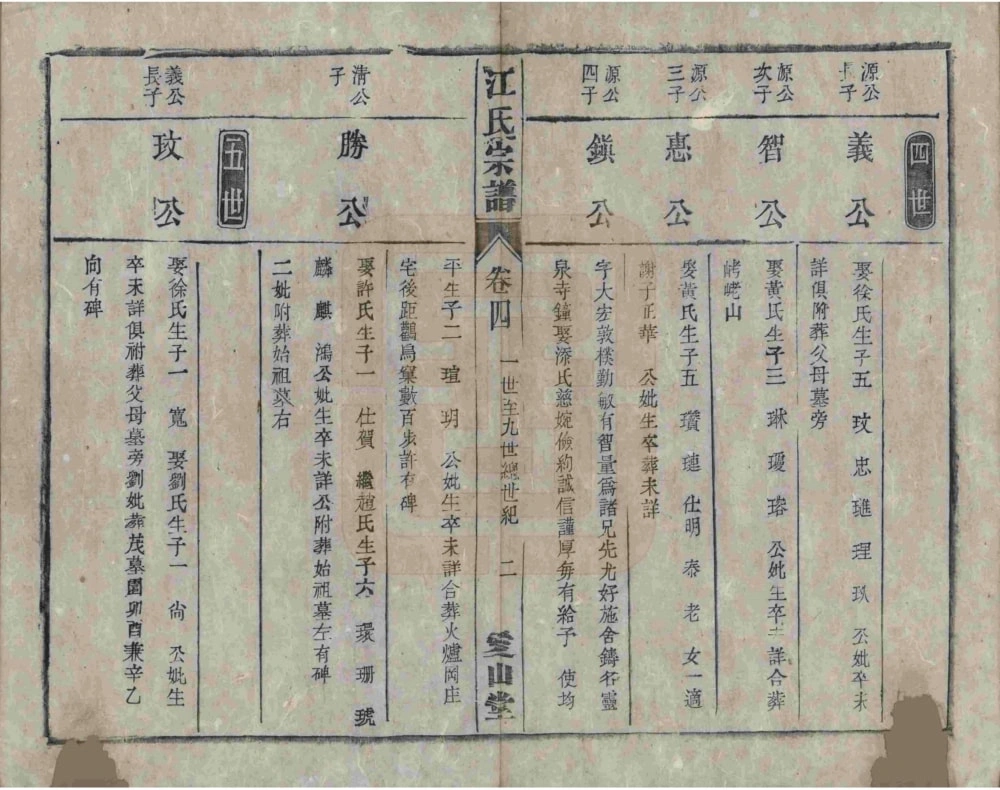 四世
源公長子
義公
娶徐氏生子五 玟 忠 璡 理 玖 公妣卒未
詳俱附葬父母墓旁
源公次子
智公
娶黃氏生子三 琳 璦 瑢 公妣生卒未詳合葬
峬峔山
源公三子
惠公
娶黃氏生子五 瓚 璉 仕明 泰 老 女一適
謝子正華 公妣生卒葬未詳
源公四子
鎮公
字大宏敦樸勤敏有智量為諸兄先尤好施舍鑄名靈
泉寺鐘娶添氏慈婉儉約誠信謹厚每有給予 使均
江氏宗譜
卷四
一世至九世總世紀
二
愛山堂
平生子二 瑄 玥 公妣生卒未詳合葬火爐岡庄
宅後距鸛鳥窠數百步許有碑
清公子
勝公
娶許氏生子一 仕賀 繼趙氏生子六 環 珊 琥
麟 麒 鴻公妣生卒未詳公附葬始祖墓左有碑
二妣附葬始祖墓右
五世
義公長子
玟公
娶徐氏生子一 寬 娶劉氏生子一 尙 公妣生
卒未詳俱祔葬父母墓旁劉妣葬茂墓園卯酉兼辛乙
向有碑